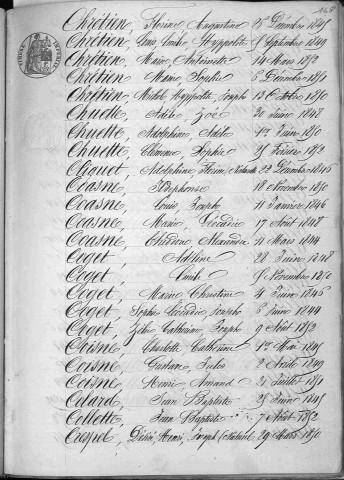 148
Chrétien, Augustine 18 Décembre 1845
Chrétien, Hyppolite 8 Septembre 1849
Chrétien, Marie Antoinette 14 Mars 1852
Chrétien, Marie Sophie 6 Décembre 1850
Chrétien, Hyppolite, Joseph 13 Octobre 1850
Chuette, Zoé 30 Juin 1848
Chuette, Adolphine Adèle 1er Juin 1850
Chuette, Clémence Sophie 25 Février 1852
Cliquet, Adolphine 22 Décembre 1846
Coasne, Ildephonse 18 Novembre 1850
Coasne, Louis Joseph 11 Janvier 1846
Coasne, Marie, Léocadie 17 Août 1848
Coasne, Alexandre 11 Mars 1844
Coget, Adeline 28 Juin 1848
Coget, Emile Novembre 1850
Coget, Marie Christine 4 Juin 1846
Coget, Sophie Léocadie Joseph 6 Juin 1844
Coget, Catherine Joseph 9 Août 1852
Coisne, Charlotte Catherine 1er Mai 1845
Coisne, Gustave Jules 2 Août 1849
Coisne, Henri Amand 21 Juillet 1851
Colard, Jean Baptiste 25 Juin 1845
Collette, Jean Baptiste 7 Août 1852
Crespel, Désiré, Henri, Joseph (Naturel) 29 Mars 1850